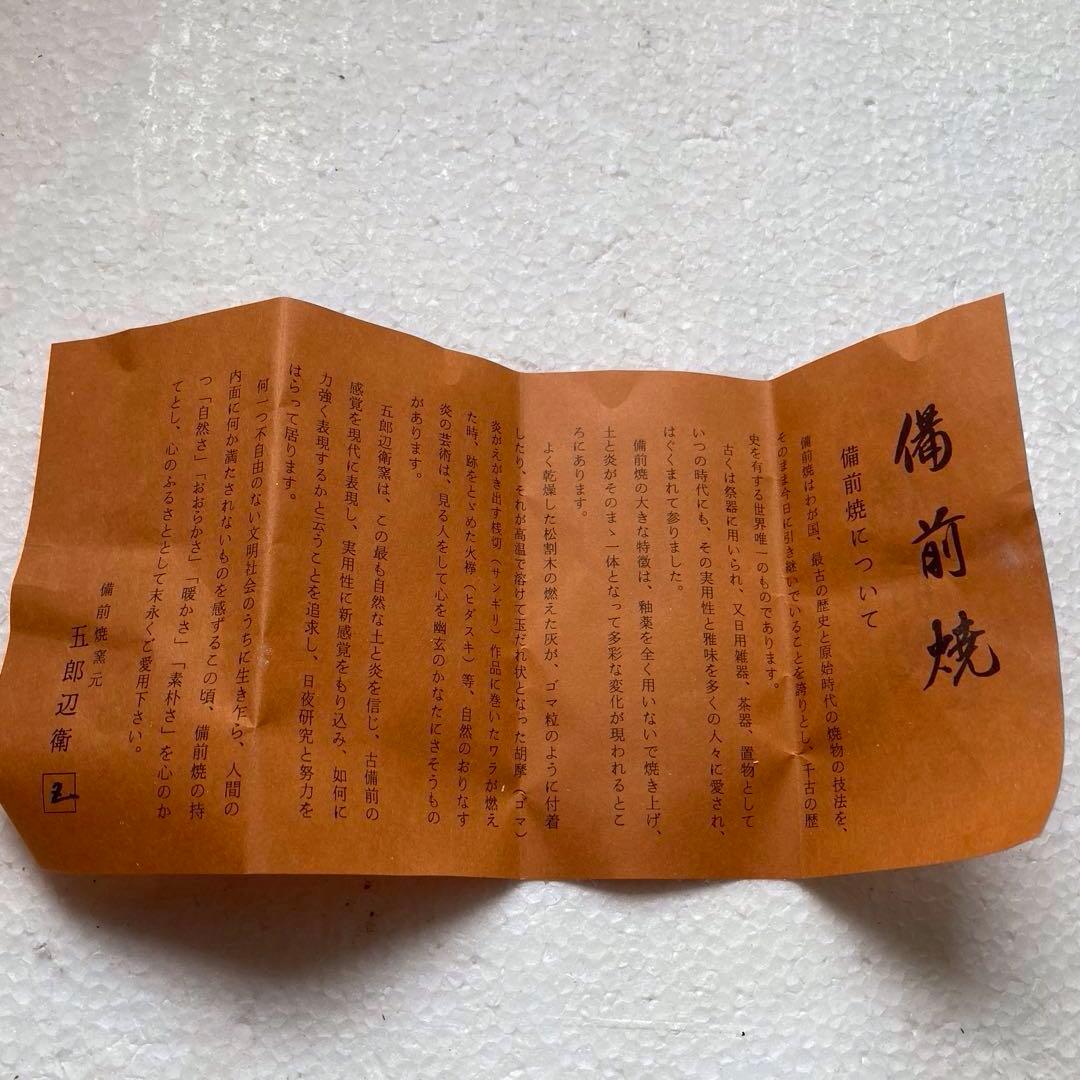 備前焼
備前焼について
備前焼はわが国、最古の歴史と原始時代の焼物の技法を、
そのまま今日に引き継いでいることを誇りとし、千古の歴
史を有する世界唯一のものであります。
古くは祭器に用いられ、又日用雑器、茶器、置物として
いつの時代にも、その実用性と雅味を多くの人々に愛され、
はぐくまれて参りました。
備前焼の大きな特徴は、釉薬を全く用いないで焼き上げ、
土と炎がそのまゝ一体となって多彩な変化が現われるとこ
ろにあります。
よく乾燥した松割木の燃えた灰が、ゴマ粒のように付着
したり、それが高温で溶けて玉だれ状となった胡摩（ゴマ）
炎がえがき出す桟切（サンギリ）作品に巻いたワラが燃え
た時、跡をとゞめた火襷（ヒダスキ）等、自然のおりなす
炎の芸術は、見る人をして心を幽玄のかなたにさそうもの
があります。
五郎辺衛窯は、この最も自然な土と炎を信じ、古備前の
感覚を現代に表現し、実用性に新感覚をもり込み、如何に
力強く表現するかと云うことを追求し、日夜研究と努力を
はらって居ります。
何一つ不自由のない文明社会のうちに生き乍ら、人間の
内面に何か満たされないものを感ずるこの頃、備前焼の持
つ「自然さ」「おおらかさ」「暖かさ」「素朴さ」を心のか
てとし、心のふるさととして末永くご愛用下さい。
備前焼窯元
五郎辺衛